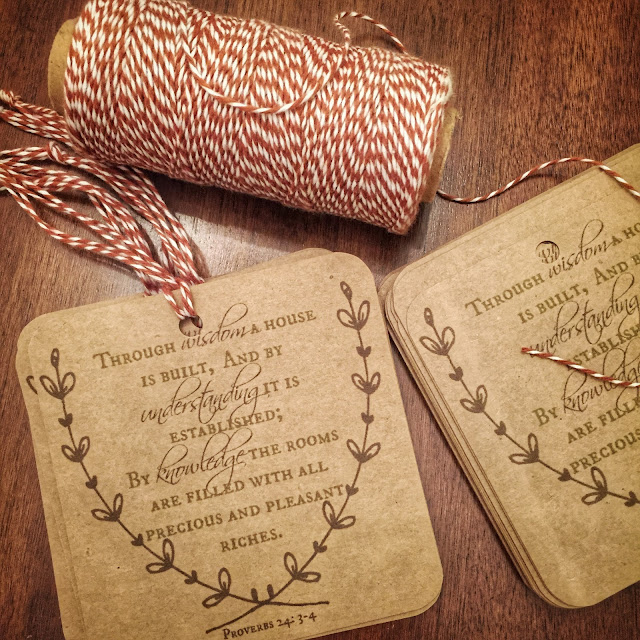 Through wisdom a house
is built, And by
understanding it is
established;
By knowledge the rooms
are filled with all
precious and pleasant
riches.
Proverbs 24:3-4
Through wisdom a ho
is built, And b
understanding
established
By knowledge
are fille
precious